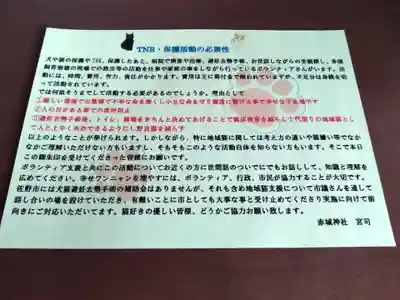 TNR・保護活動の必要性
犬や猫の保護やTNR、保護したあと、病院で検査や治療、避妊去勢手術、お世話しながらの里親探し、多頭
飼育崩壊の現場での救出等の活動を仕事や家庭の事をしながら行っているボランティアさんがいます。活
動には、時間、費用、労力、責任がかかります。費用は主に寄付金で賄われていますが、不足分は身銭を切
って活動されています。
では何故そうまでして活動する必要があるのでしょうか。理由として
②人の目がある事での虐待防止
人と上手く共存できるようにし野良猫を減らす
以上のようなことが挙げられます。しかしながら、特に地域猫に関しては考え方の違いや猫嫌い等でなか
なかご理解いただけない方もいますし、そもそもこのような活動自体を知らない方もいます。そこで本日
この御朱印を受けてくださった皆様にお願いです。
ボランティア支援と共にこの活動についてお近くの方に世間話のついでにでもお話して、知識と理解を
広めてください。幸せワンニャンを増やすには、ボランティア、行政、市民が協力することが大切です。
佐野市には犬猫避妊去勢手術の補助金はありませんが、それも含め地域猫支援について市議さんを通して
話し合いの場を設けていただき、有難いことに市としても大事な事と受け止めてくださり実施に向けて前
向きにご対応いただいてます。猫好きの優しい皆様、どうかご協力お願い致します。
赤城神社 宮司